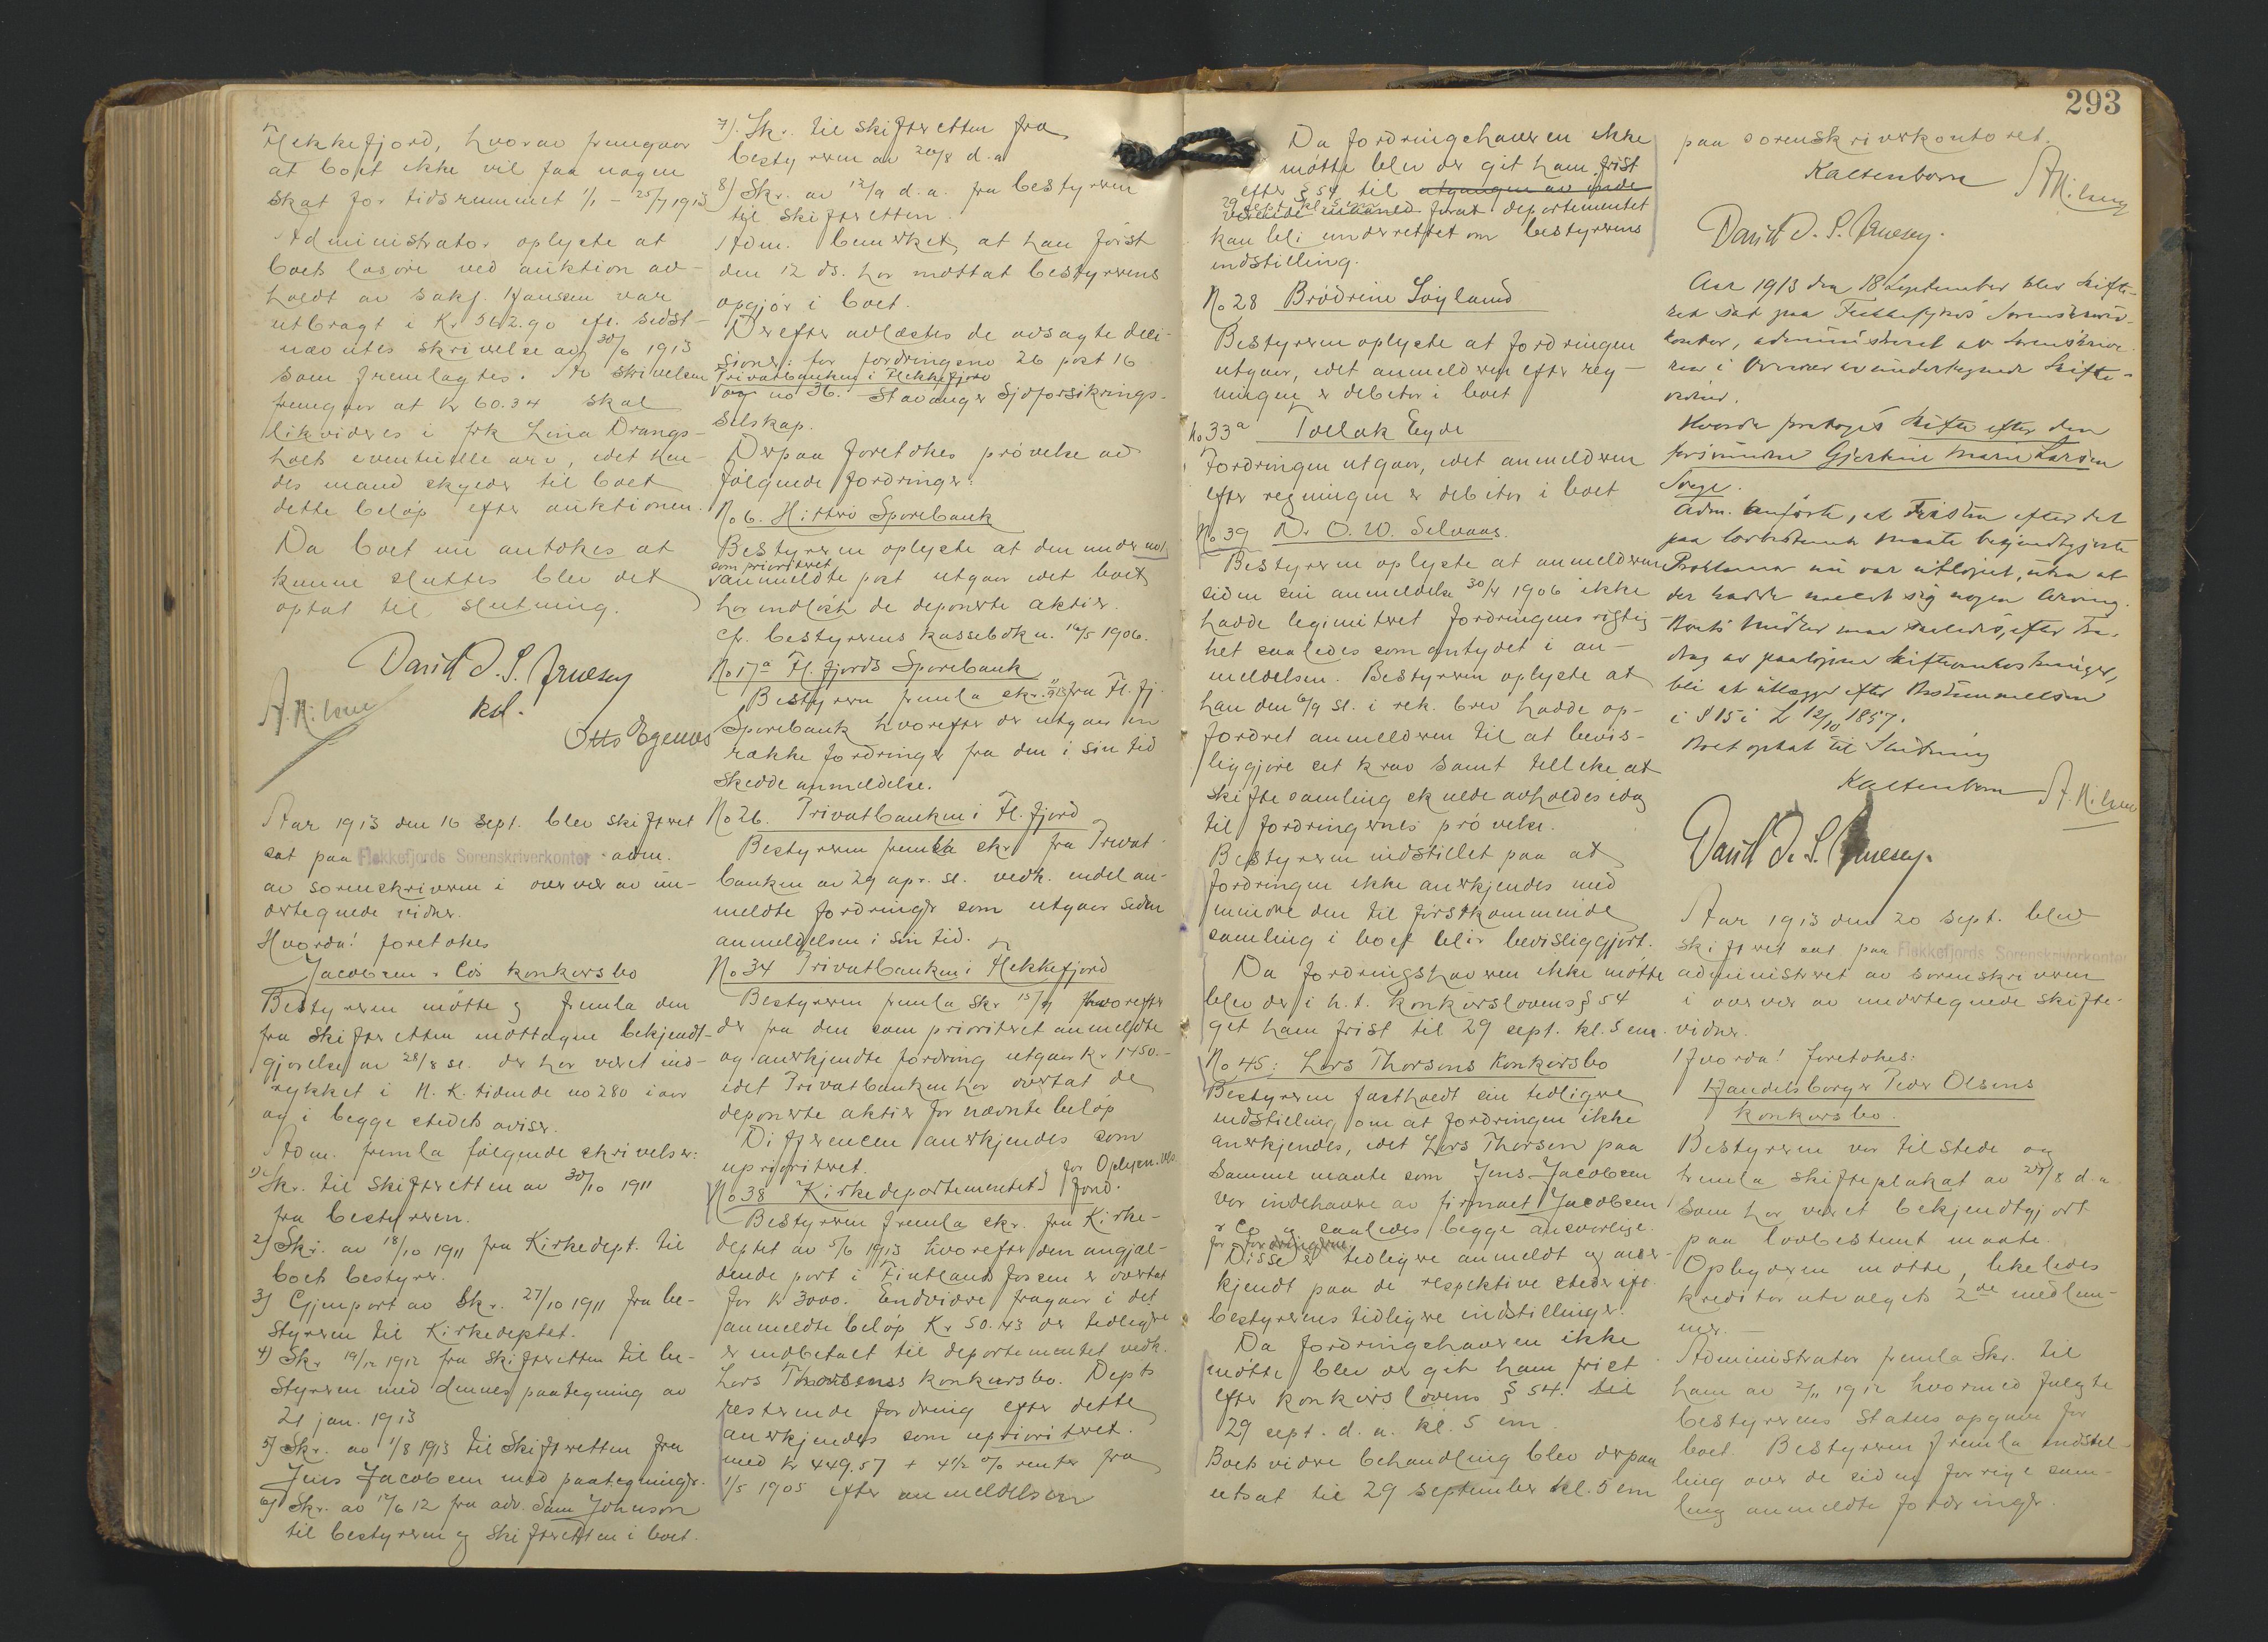 Flekkefjord, hvorav fremgaar
at boet ikke vil faa nogen
skat for tidsrummet 1/1 - 25/7 1913
Administrator oplyste at
boets løsøre ved auktion av-
holdt av saks. Hansen var
utbragt i Kr 562.90 eft. sidst-
nævntes skrivelse av 30/6 1913
som fremlagtes. Av skrivelsen
fremgaar at kr 60.34 skal
likvideres i frk Lina Drangs-
holts eventuelle arv, idet hen-
des mand skylder til boet
dette beløp efter auktionen.
Da boet nu antokes at
kunne sluttes blev det
optat til slutning.
David D. S.
kst.
A. Nilsen
Otto Egenes
Aar 1913 den 16 sept. blev skifteret
sat paa Flekkefjords Sorenskriverkontor adm.
av sorenskriveren i overvær av un-
dertegnede vidner.
Hvorda! foretokes
Jacobsen & Co's konkursbo
Bestyreren møtte og fremla den
fra skifteretten mottagne bekjendt-
gjørelse av 28/8 sl. der har været ind-
rykket i N. K. tidende no 280 iaar
og i begge stedets aviser.
Adm. fremla følgende skrivelser:
1) Skr. til skifteretten av 30/10 1911
fra bestyreren.
2) Skr. av 18/10 1911 fra Kirkedept. til
boets bestyrer.
3) Gjenpart av skr. 27/10 1911 fra be-
styreren til Kirkedeptet.
4) Skr 19/12 1912 fra skifteretten til be-
styreren med dennes paategning av
21 jan. 1913
5) Skr. av 1/8 1913 til Skifteretten fra
Jens Jacobsen med paategninger.
6) Skr. av 17/6 12 fra adv. Sam Johnson
til bestyreren og skifteretten i boet.
7). Skr. til skifteretten fra
bestyreren av 20/8 d.a
8) Skr. av 12/9 d.a. fra bestyreren
til skifteretten.
Adm. bemerket, at han først
den 12 ds. har mottat bestyrerens
opgjør i boet.
Derefter avlæstes de avsagte deci-
sioner: for fordringene 26 post 16
Privatbanken i Flekkefjord
og no 36. Stavanger Sjøforsikrings-
selskap.
Derpaa foretokes prøvelse av
følgende fordringer:
No 6. Hitterø Sparebank
Bestyreren oplyste at den under no 1
som prioritert
anmeldte post utgaar idet boet
har indløst de deponerte aktier.
cfr. bestyrerens kassebok u. 16/5 1906.
No 17a Fl. fjords Sparebank
Bestyreren fremla skr. 11/9 13 fra Fl. fj.
Sparebank hvorefter der utgaar en
række fordringer fra den i sin tid
skedde anmeldelse.
No 26. Privatbanken i Fl. fjord
Bestyreren fremla skr fra Privat-
banken av 29 apr. sl. vedk. endel an-
meldte fordringer som utgaar siden
anmeldelsen i sin tid.
No 34 Privatbanken i Flekkefjord
Bestyreren fremla skr 15/9 hvorefter
der fra den som prioritert anmeldte
og anerkjendte fordring utgaar kr 1450.-
idet Privatbanken har overtat de
deponerte aktier for nævnte beløp
Differencen anerkjendes som
uprioriteret.
No 38 Kirkedepartementet for Oplysn.væs. fond.
Bestyreren fremla skr. fra Kirke-
deptet av 5/6 1913 hvorefter den angjæl-
dende part i Fintlandsfossen er overtat
for kr 3000. Endvidere fragaar i det
anmeldte beløp Kr 50.43 der tidligere
er indbetalt til departementet vedk.
Lars Thorsens konkursbo. Depts
resterende fordring efter dette
anerkjendes som uprioriteret.
med kr 449.57 + 4½ % renter fra
1/5 1905 efter anmeldelsen
293
Da fordringshaveren ikke
møtte blev der git ham frist
efter § 54 til utgangen av inde
29 sept. kl. 5 em
værende maaned forat departementet
kan bli underrettet om bestyrerens
indstilling.
No 28 Brødrene Løyland
Bestyreren oplyste at fordringen
utgaar, idet anmelderen efter reg-
ningen er debitor i boet
No 33a Tollak Eyde
Fordringen utgaar, idet anmelderen
efter regningen er debitor i boet
No 39 Dr O. W. Selvaas.
Bestyreren oplyste at anmelderen
siden sin anmeldelse 30/4 1906 ikke
hadde legimiteret fordringens rigtig
het saaledes som antydet i an-
meldelsen. Bestyreren oplyste at
han den 6/9 sl. i rek. brev hadde op-
fordret anmelderen til at bevis-
liggjøre set krav samt tillike at
skiftesamling skulde avholdes idag
til fordringernes prøvelse.
Bestyreren indstillet paa at
fordringen ikke anerkjendes med
mindre den til førstkommende
samling i boet blir bevisliggjort.
Da fordringshaveren ikke møtte
blev der i h. t. konkurslovens § 54
get ham frist til 29 sept. kl. 5 em.
No 45: Lars Thorsens Konkursbo
Bestyreren fastholdt sin tidligere
indstilling om at fordringen ikke
anerkjendes, idet Lars Thorsen paa
samme maate som Jens Jacobsen
var indehavere av firmaet Jacobsen
& Co og saaledes begge ansvarlige.
for fordringerne
Disse er tidligere anmeldt og aner-
kjendt paa de respektive steder eft.
bestyrerens tidligere indstillinger.
Da fordringshaveren ikke
møtte blev der git ham frist
efter konkurslovens § 54. til
29 sept. d. a. kl. 5 em.
Boets vidre behandling blev derpaa
utsat til 29 september kl. 5 em
paa sorenskriverkontoret.
Kaltenborn
A. Nilsen
David D. S.
Aar 1913 den 18 September blev skifte-
ret sat paa Flekkefjords Sorenskriver-
kontor, administreret av Sorenskrive-
ren i Overvær av undertegnede Skifte-
vidner.
Hvorda foretoges Skifte efter den
forsvundne Gjertine Marie Larsen
Adm. anførte, at Fristen efter det
paa lovbestemt Maate bekjendtgjorte
Proklama nu var utløpet, uten at
der hadde meldt sig nogen Arving.
Boets Midler maa saaledes, efter Fra-
drag av paaløpne Skifteomkostninger,
bli at utlægge efter Bestemmelsen
i § 15 i L 12/10 1857.
Boet optat til Slutning
Kaltenborn
A. Nilsen
David D. S.
Aar 1913 den 20 sept. blev
skifteret sat paa Flekkefjords Sorenskriverkontor
administreret av sorenskriveren
i overvær av undertegnede skifte-
vidner.
Hvorda! foretokes:
Handelsborger Peder Olsens
konkursbo.
Bestyreren var tilstede og
fremla skifteplakat av 28/8 d. a.
som har været bekjendtgjort
paa lovbestemt maate.
Opbyderen møtte, likeledes
kreditorutvalgets 2de medlem-
mer.
Administrator fremla Skr. til
ham av 2/11 1912 hvormed fulgte
bestyrerens Status opgave for
boet. Bestyreren fremla indstil-
ling over de siden forrige sam-
ling anmeldte fordringer.